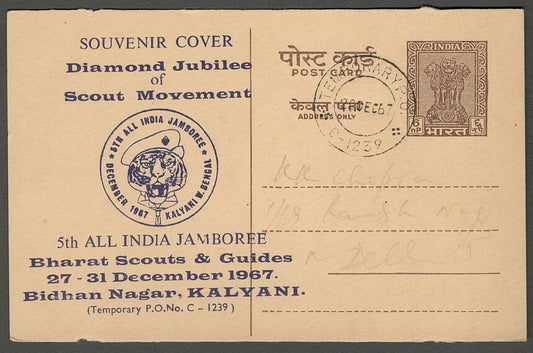 SOUVENIR COVER
Diamond Jubilee
of
Scout Movement
5TH ALL INDIA JAMBOREE
DECEMBER 1967 KALYANI W. BENGAL
5th ALL INDIA JAMBOREE
Bharat Scouts & Guides
27 - 31 December 1967.
Bidhan Nagar, KALYANI.
(Temporary P.O.No. C - 1239)
पोस्ट कार्ड
POST CARD
केवल पता
ADDRESS ONLY
TEMPORARY P.O.
DEC 67
C-1239
INDIA
भारत
Delhi 15